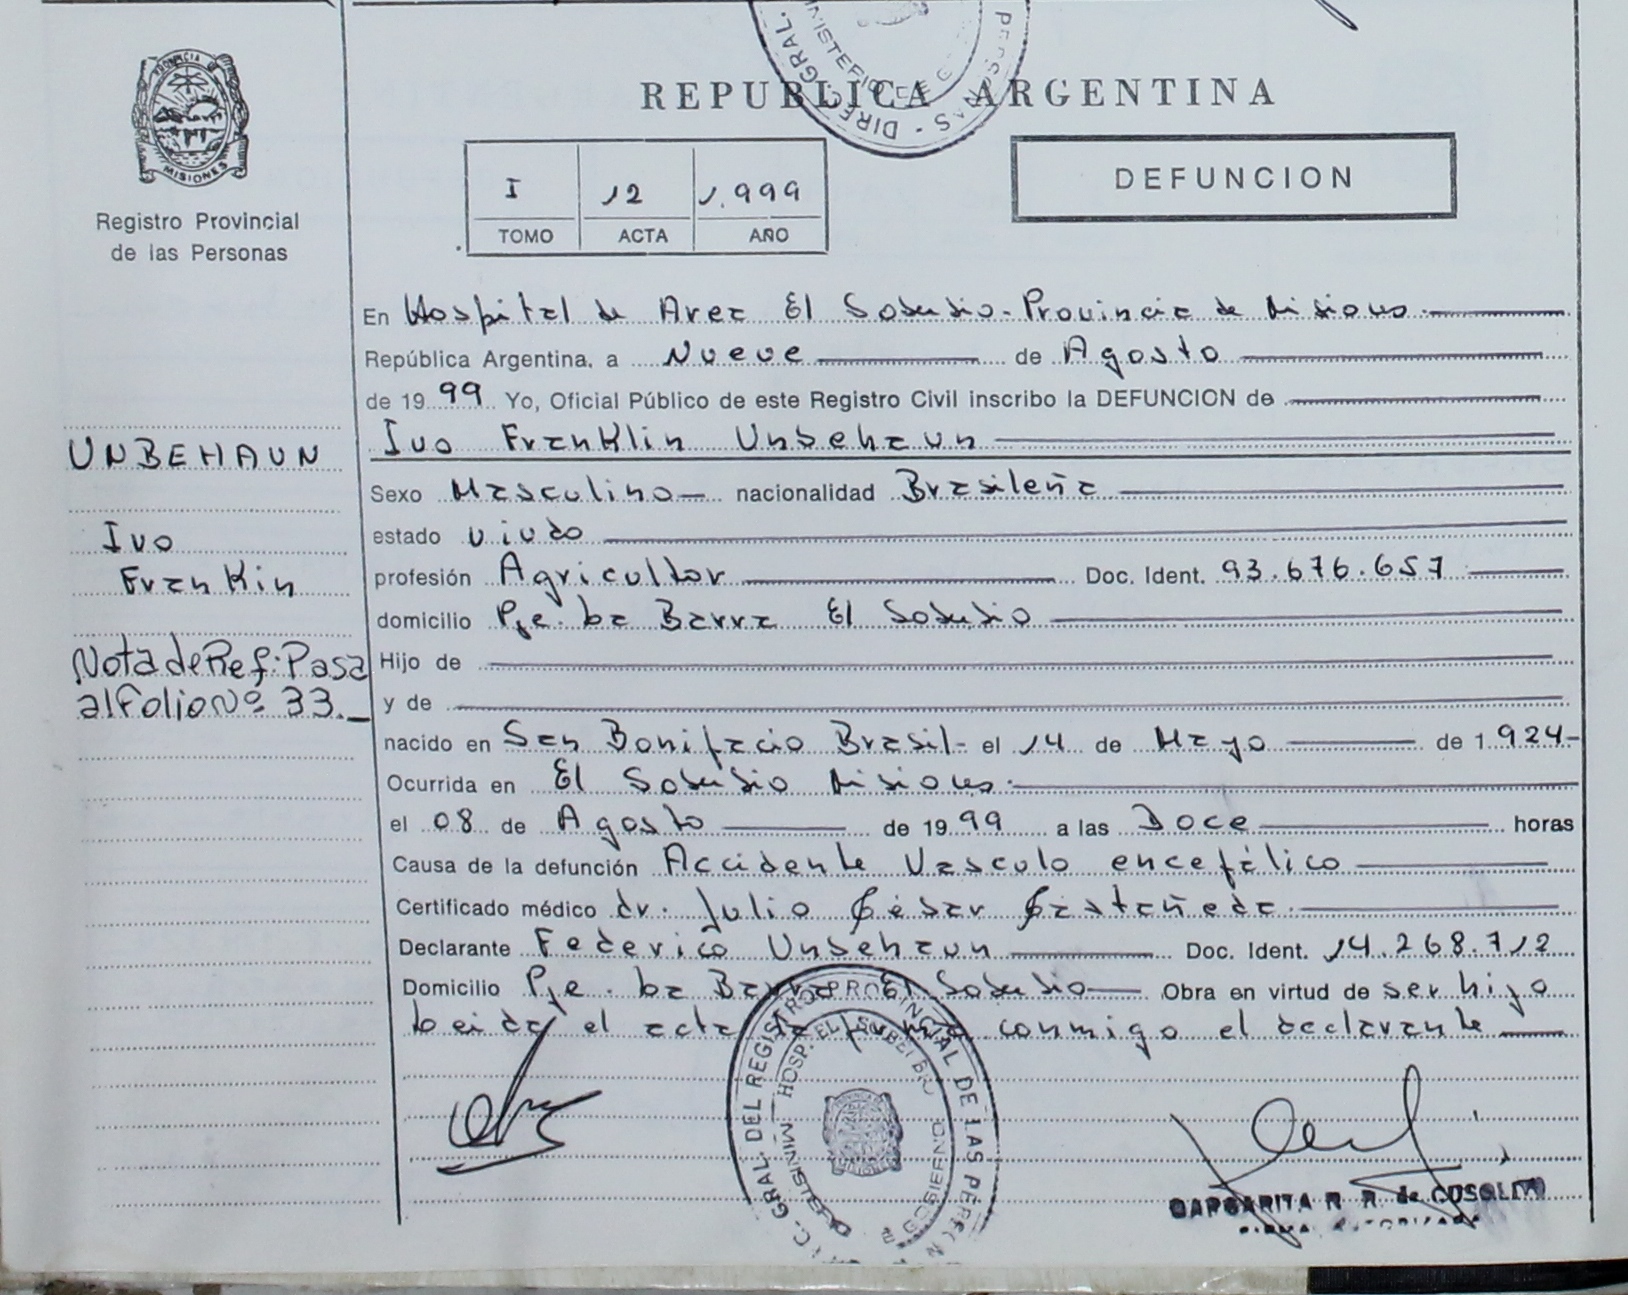 REPUBLICA ARGENTINA
PROVINCIA
MISIONES
Registro Provincial
de las Personas
I 12 1.999
TOMO ACTA AÑO
DEFUNCION
En Hospital de Area El Soberbio - Provincia de Misiones.
República Argentina, a Nueve de Agosto
de 1999 Yo, Oficial Público de este Registro Civil inscribo la DEFUNCION de
Ivo Franklin Unbehaun
UNBEHAUN
Ivo
Frankin
Nota de Ref: Pasa
al Folio Nº 33.
Sexo Masculino nacionalidad Brasileña
estado viudo
profesión Agricultor Doc. Ident. 93.676.657
domicilio Pje. La Barra El Soberbio
Hijo de
y de
nacido en San Bonifacio Brasil - el 14 de Mayo de 1.924-
Ocurrida en El Soberbio Misiones.
el 08 de Agosto de 1999 a las Doce horas
Causa de la defunción Accidente Vasculo encefálico
Certificado médico dr. Julio César Castañeda.
Declarante Federico Unbehaun Doc. Ident. 14.268.712
Domicilio Pje. La Barra El Soberbio Obra en virtud de ser hijo
Leida el acta la firma conmigo el declarante
GRAL. DEL REGISTRO PROVINCIAL DE LAS
HOSP. EL SOBERBIO
MARGARITA R. R. de